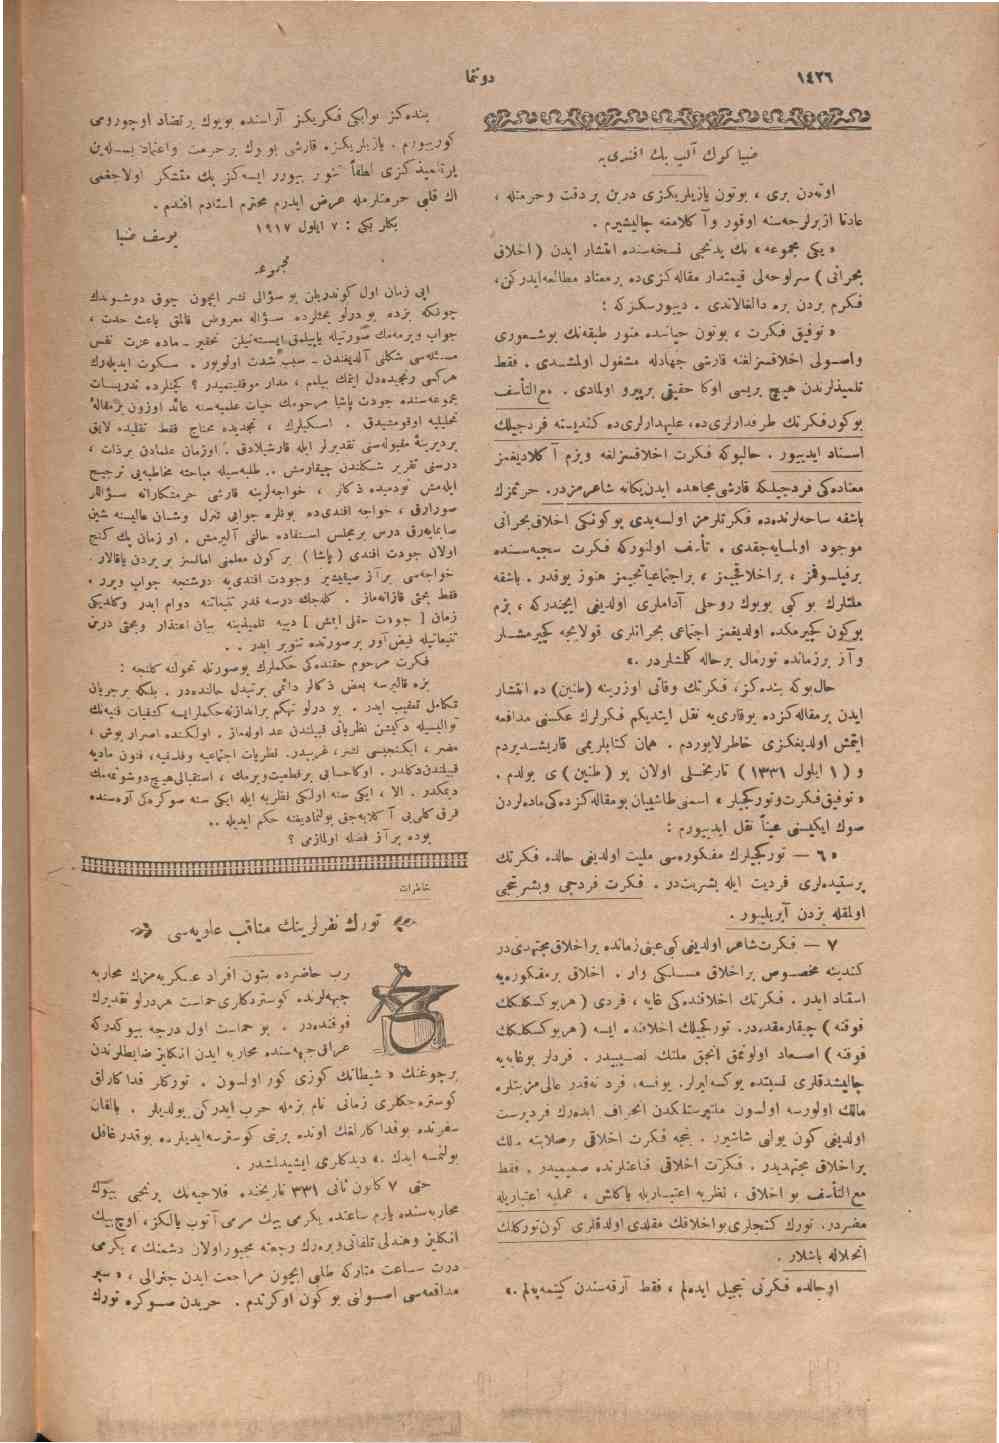 ١٤٢٦
دونما
ضيا كوك آلپ بك افندی‌يه
اوته‌دن بری ، بوتون يازيلريكزی درين بر دقت و حرمتله ،
عادتا ازبرلرجه‌سنه اوقور و آ كلامغه چاليشيرم .
« يكی مجموعه » نك يدنجی نسخه‌سنده انتشار ايدن ( اخلاق
بحرانی ) سرلوحه‌لی قيمتدار مقاله‌كزی ده بر معتاد مطالعه‌ايدركن،
فكرم بردن بره دالغالاندی . ديیورسكز كه :
« توفيق فكرت ، بوتون حياتنده منور طبقه‌نك بوشعوری
واصولی اخلاقسزلغنه قارشی جهادله مشغول اولمشدی . فقط
تلميذلرندن هيچ بريسی اوكا حقيقی بر پيرو اولمادی . مع التأسف
بوكون فكرتك طرفدارلری‌ده، عليهدارلری‌ده كنديسنه فردجيلك
اسناد ايديیور . حالبوكه فكرت اخلاقسزلغه و بزم آ كلاديغمز
معناده‌كی فردجيلكه قارشی مجاهده ايدن يكانه شاعرمزدر. حرثمزك
باشقه ساحه‌لرنده‌ده فكرتلرمز اولسه‌يدی بوكونكی اخلاق بحرانی
موجود اولمايه‌جقدی . تأسف اولنوركه فكرت سجيه‌سنده
بر فيلسوفمز ، بر اخلاقجيمز ، بر اجتماعياتجيمز هنوز يوقدر . باشقه
ملتلرك بو كبی بويوك روحلی آداملری اولديغی ايچندركه ، بزم
بوكون كچيرمكده اولديغمز اجتماعی بحرانلری قولايجه كچيرمشلر
و آز بر زمانده نورمال بر حاله كلمشلردر .»
حال‌بوكه بنده‌كز، فكرتك وفاتی اوزرينه (طنين) ده انتشار
ايدن بر مقاله‌كزده بوقاری‌يه نقل ايتديكم فكرلرك عكسنی مدافعه
ايتمش اولديغكزی خاطرلايوردم . همان كتابلريمی قاريشديردم
و ( ١ ايلول ١٣٣١ ) تاريخلی اولان بو ( طنين ) ی بولدم .
« توفيق فكرت و توركجيلر » اسمنی طاشييان بو مقاله‌كزده‌كی ماده‌لردن
صوك ايكيسنی عيناً نقل ايديیورم :
« ٦ — توركجيلرك مفكوره‌سی مليت اولديغی حالده فكرتك
پرستيده‌لری فرديت ايله بشريت‌در . فكرت فردجی و بشرتجی
اولمقله بزدن آيريليیور .
٧ — فكرت شاعر اولديغی كبی عينی زمانده بر اخلاق مجتهدی‌در
كندينه مخصوص بر اخلاق مسلكی وار . اخلاق بر مفكوره‌يه
استناد ايدر . فكرتك اخلاقنده‌كی غايه ، فردی ( هر بوكسكلكك
فوقنه ) چيقارمقدر. توركجيلك اخلاقنده ايسه ( هر بوكسكلكك
فوقنه ) اصعاد اولونمق انجق ملتك نصيبيدر . فردلر بو غايه‌يه
چاليشدقلری نسبتده يوكسه‌ليرلر. يوقسه، فرد نه‌قدر عالی مزيتلره
مالك اولورسه اولسون ملتپرستلكدن انحراف ايده‌رك فردپرست
اولديغی كون يولنی شاشيرر . بنجه فكرت اخلاقی رصلابته مالك
بر اخلاق مجتهديدر . فكرت اخلاقی قناعتلرنده صميميدر . فقط
مع التأسف بو اخلاق ، نظريه اعتباريله ياكلش ، عمليه اعتباريله
مضردر. تورك كنجلری بو اخلاقك مقلدی اولدقلری كون توركلك
انحلاله باشلار .
اوحالده فكرتی تبجيل ايده‌لم ، فقط آرقه‌سندن كيتمه‌يه‌لم .»
بنده‌كز بو ايكی فكريكز آراسنده بويوك بر تضاد اوچورومی
كوريیورم . يازيلريكزه قارشی بويوك بر حرمت و اعتماد بسله‌ين
بر تلميذكزی لطفاً تنوير بيورر ايسه‌كز پك متشكر اولاجغمی
اك قلبی حرمتلرمله عرض ايدرم محترم استادم افندم .
بكلر بكی : ٧ ايلول ١٩١٧
يوسف ضيا
مجموعه
ايی زمان اول كوندريلن بو سؤالی نشر ايچون چوق دوشوندك
چونكه بزده بو درلو بحثلرده سؤاله معروض قالمق باعث حدت ،
جواب ويرمه‌مك صورتيله ياپيلمق ايسته‌نيلن تحقير ـ ماده عزت نفس
مسئله‌سی شكلنی آلديغندن ـ سبب شدت اولويور . سكوت ايديله‌رك
هركسی رنجيده‌دل ايتمك بيلمم ، مدار موفقيتميدر ؟ كچنلرده تدريسات
مجموعه‌سنده جودت پاشا مرحومك حيات علميه‌سنه عائد اوزون بر مقالۀ
تحليليه اوقومشيدق . اسكيلرك ، تجديده محتاج فقط تقليده لايق
بر ديرينۀ مقبوله‌سنی تقديرلر ايله قارشيلادق . اوزمان علمادن بر ذات ،
درسنی تقرير شكلندن چيقارمش .. طلبه‌سيله مباحثه مخاطبه‌يی ترجيح
ايله‌مش نودميده ذكالر ، خواجه‌لرينه قارشی حرمتكارانه سؤاللر
صورارق ، خواجه افندی‌ده بونلره جوابی تنزل و شان عاليسنه شين
صايمايه‌رق درس بر مجلس استفاده حالنی آليرمش . او زمان پك كنج
اولان جودت افندی ( پاشا ) بر كون معلمنی امالسز بر بردن ياقالار .
خواجه‌سی بر آز صيقيشير و جودت افندی‌يه دوشنجه جواب ويرر .
فقط بحثی قازانه‌ماز . كله‌جك درسه قدر تتبعاتنه دوام ايدر و كلديكی
زمان [ جودت حقلی ايمش ] دييه تلميذينه بيان اعتذار و بحثی درين
تتبعاتيله فيض‌آور بر صورتده تنوير ايدر . .
فكرت مرحوم حقنده‌كی حكملرك بو صورتله تحولنه كلنجه :
بزه قاليرسه بعض ذكالر دائمی بر تبدل حالنده‌در . بلكه بر جريان
تكامل تعقيب ايدر . بو درلو تهكم بر اندازنه حكملر ايسه كشفيات فنيه‌نك
تواليسيله دكيشن نظرياتی قبيلندن عد اولنه‌ماز . اولكنده اصرار بوش ،
مضر ، ايكنجيسی لنتر، غريبدر. نظريات اجتماعيه و فلسفيه، فنون ماديه
قبيلندن دكلدر . اوكا حسابی بر قطعيت ويرمك ، استقبالی هيچ دوشونمه‌مك
ديمكدر . الا ، ايكی سنه اولكی نظريه ايله ايكی سنه صوكره‌كی آره‌سنده
فرق كلی‌يی آ كلايه‌جق بولنماديغنه حكم ايديله ..
بوده بر آز فضله اولمازمی ؟
خاطرات
تورك نفرلرينك مناقب علويه‌سی
رب حاضرده بتون افراد عسكريه‌مزك محاربه
جبهه‌لرنده كوستردكلری حماست هر درلو تقديرك
فوقنده‌در . بو حماست اول درجه بيوكدركه
عراق جبهه‌سنده محاربه ايدن انكليز ضابطلرندن
بر چوغنك « شيطانك كوزی كور اولسون . توركلر فداكارلق
كوستره‌جكلری زمانی تام بزمله حرب ايدركن بولديلر . بالقان
سفرنده بو فداكارلغك اونده برينی كوسترسه‌ايديلرده بوقدر غافل
بولنمسه ايدك .» ديدكلری ايشيدلمشدر .
حتی ٧ كانون ثانی ٣٣١ تاريخنده فلاحيه‌نك برنجی بيوك
محاربه‌سنده يارم ساعتده يكرمی بيك مرمی آتوب يالكز، اوچ بيك
انكليز و هندلی تلفاتی ويره‌رك رجعته مجبور اولان دشمنك ، يكرمی
درت ساعت متاركه طلبی ايچون مراجعت ايدن جنرالی ، « سپر
مدافعه‌سی اصولنی بوكون اوكرندم . حربدن صوكره تورك